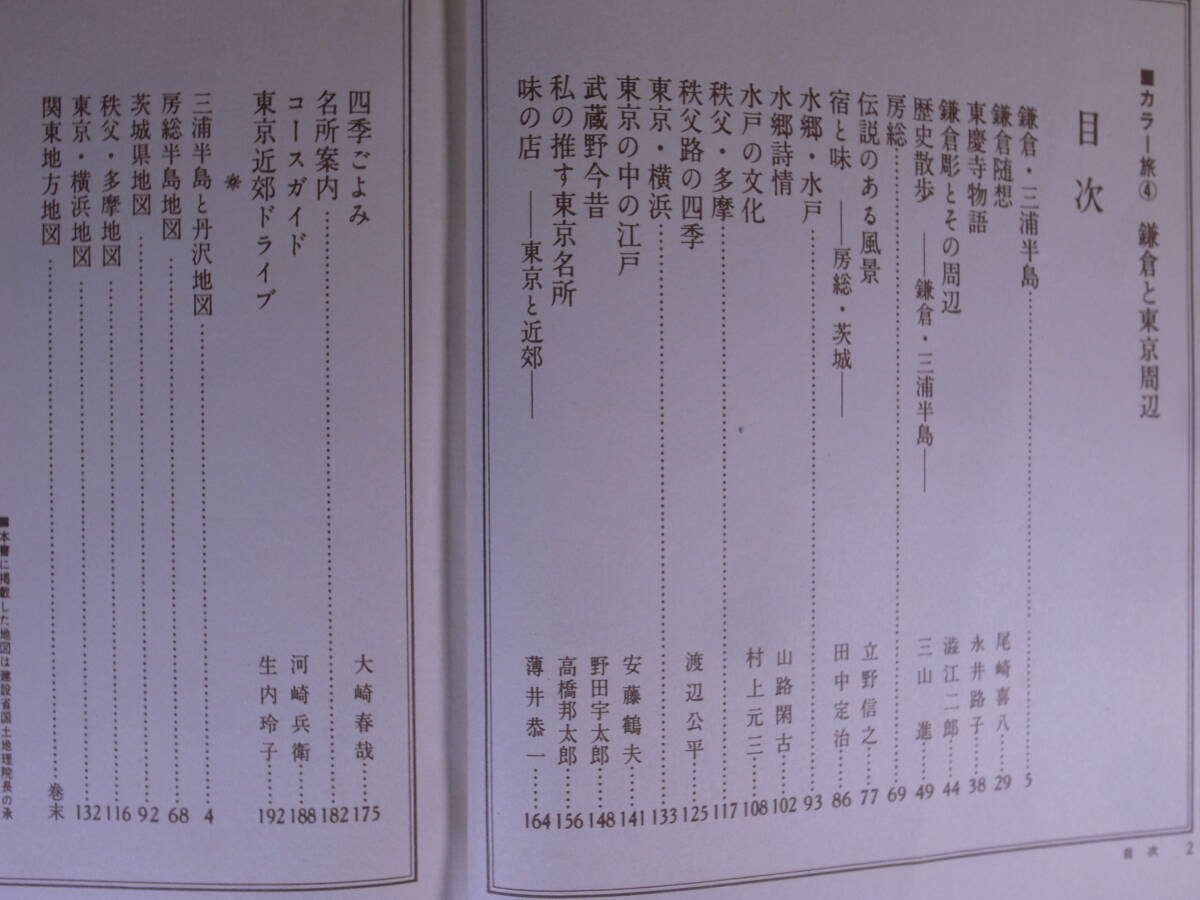 ■カラー旅④ 鎌倉と東京周辺
目次
鎌倉・三浦半島……5
鎌倉随想 尾崎喜八……29
東慶寺物語 永井路子……38
鎌倉彫とその周辺 澁江二郎……44
歴史散歩 ――鎌倉・三浦半島― 三山進……49
房総……69
伝説のある風景 立野信之……77
宿と味 ――房総・茨城― 田中定治……86
水郷・水戸……93
水郷詩情 山路閑古……102
水戸の文化 村上元三……108
秩父・多摩……117
秩父路の四季 渡辺公平……125
東京・横浜……133
東京の中の江戸 安藤鶴夫……141
武蔵野今昔 野田宇太郎……148
私の推す東京名所 高橋邦太郎……156
味の店 ――東京と近郊―― 薄井恭一……164
四季ごよみ 大崎春哉……175
名所案内……182
コースガイド 河崎兵衛……188
東京近郊ドライブ 生内玲子……192
三浦半島と丹沢地図……4
房総半島地図……68
茨城県地図……92
秩父・多摩地図……116
東京・横浜地図……132
関東地方地図……巻末
■本書に掲載した地図は建設省国土地理院長の承
目次 2